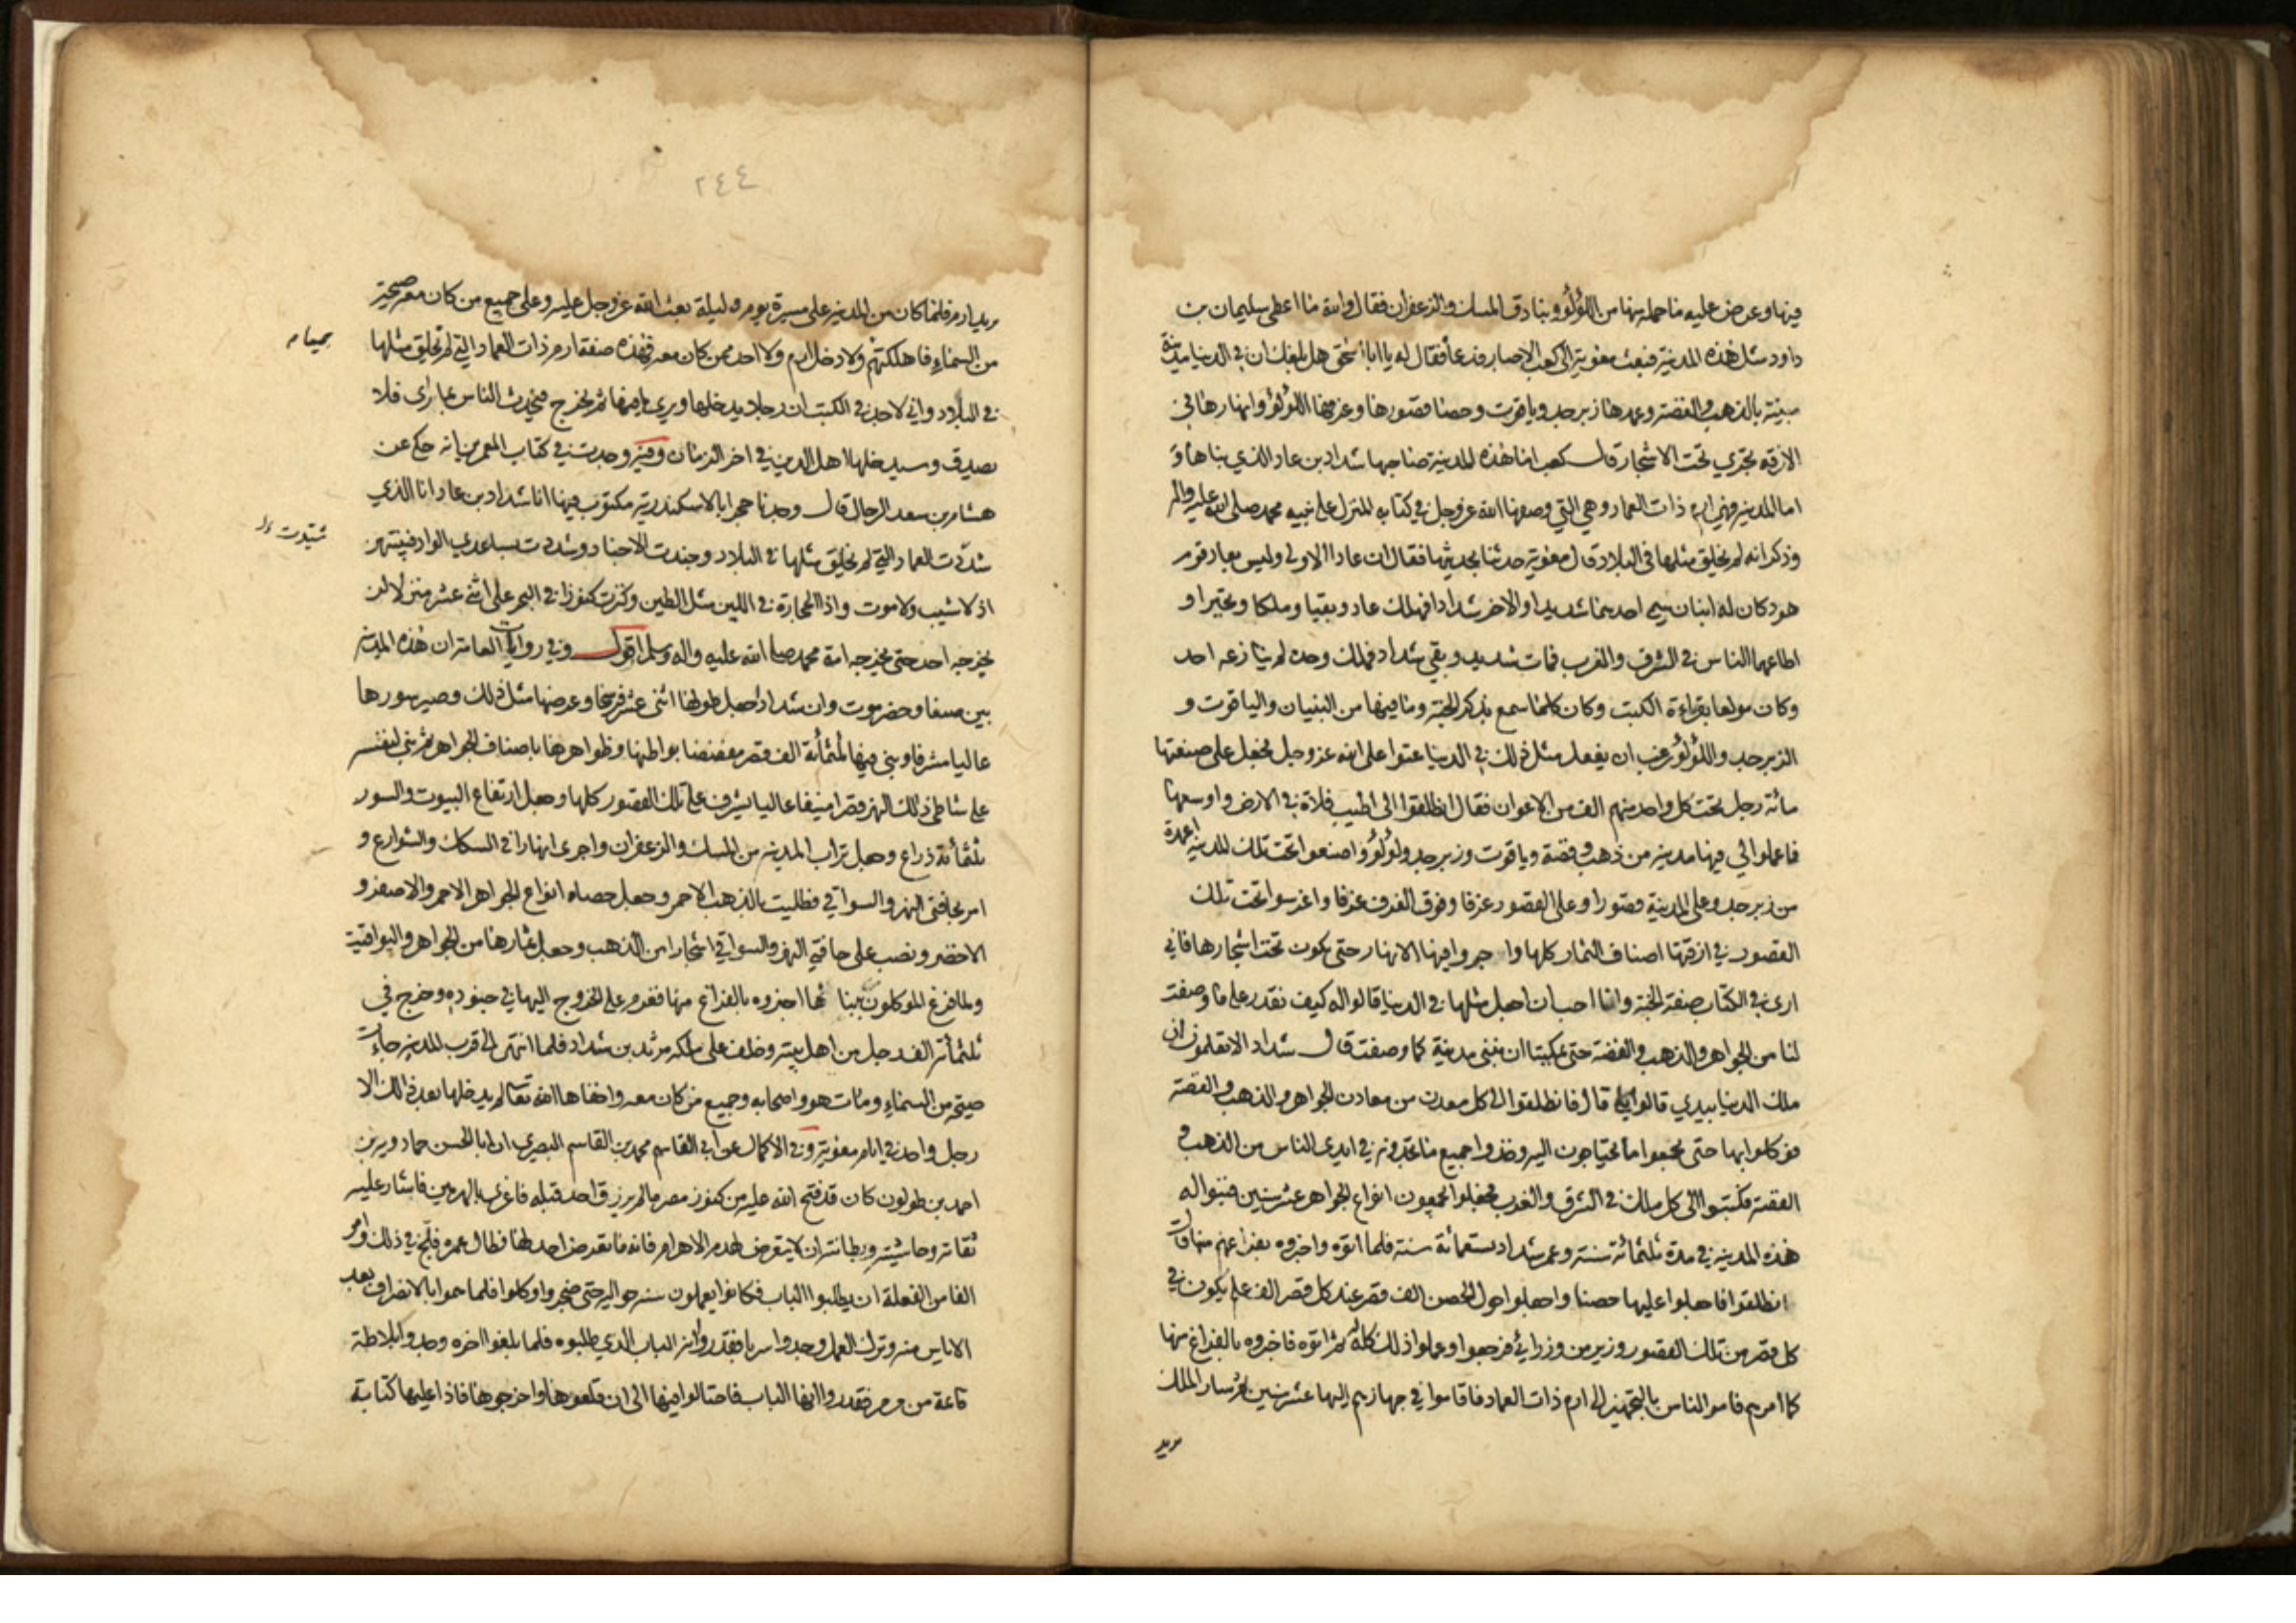 فيها وعرض عليه ما حمله منها من اللؤلؤ وبنادق المسك والزعفران فقال والله ما اعطى سليمان بن
داود مثل هذه المدينة فبعث معوية الى كعب الاحبار فدعا فقال له يا ابا اسحق هل بلغك ان في الدنيا مدينة
مبنية بالذهب والفضة وعمدها زبرجد وياقوت وحصا قصورها وغرفها اللؤلؤ وانهارها في
الازقة تجري تحت الاشجار قال كعب اما هذه المدينة صاحبها شداد بن عاد الذي بناها و
اما المدينة فهي ارم ذات العماد وهي التي وصفها الله عز وجل في كتابه المنزل على نبيه محمد صلى الله عليه واله
وذكر انه لم يخلق مثلها في البلاد قال معوية حدثنا بحديثها فقال ان عادا الاولى وليس بعاد قوم
هود كان له ابنان سمي احدهما شديدا والاخر شدادا فهلك عاد وبقيا وملكا وتجبرا و
اطاعهما الناس في الشرق والغرب فمات شديد وبقي شداد فملك وحده لم ينازعه احد
وكان مولعا بقراءة الكتب وكان كلما سمع بذكر الجنة وما فيها من البنيان والياقوت و
الزبرجد واللؤلؤ رغب ان يفعل مثل ذلك في الدنيا عتوا على الله عز وجل فجعل على صنعتها
مائة رجل تحت كل واحد منهم الف من الاعوان فقال انطلقوا الى اطيب فلاة في الارض واوسعها
فاعملوا لي فيها مدينة من ذهب وفضة وياقوت وزبرجد ولؤلؤ واصنعوا تحت تلك المدينة اعمدة
من زبرجد وعلى المدينة قصورا وعلى القصور غرفا وفوق الغرف غرفا واغرسوا تحت تلك
القصور في ازقتها اصناف الثمار كلها واجروا فيها الانهار حتى يكون تحت اشجارها فاني
ارى في الكتاب صفة الجنة وانا احب ان اجعل مثلها في الدنيا قالوا له كيف نقدر على ما وصفت
لنا من الجواهر والذهب والفضة حتى يمكننا ان نبني مدينة كما وصفت قال شداد الا تعلمون ان
ملك الدنيا بيدي قالوا بلى قال فانطلقوا الى كل معدن من معادن الجواهر والذهب والفضة
فوكلوا بها حتى تجمعوا ما تحتاجون اليه وخذوا جميع ما تجدونه في ايدي الناس من الذهب و
الفضة فكتبوا الى كل ملك في الشرق والغرب فجعلوا يجمعون انواع الجواهر عشر سنين فبنوا له
هذه المدينة في مدة ثلثمائة سنة وعمر شداد تسعمائة سنة فلما اتوه واخبروه بفراغهم منها قال
انطلقوا فاجعلوا عليها حصنا واجعلوا حول الحصن الف قصر عند كل قصر الف علم يكون في
كل قصر من تلك القصور وزير من وزرائي فرجعوا وعملوا ذلك كله ثم اتوه فاخبروه بالفراغ منها
كما امرهم فامر الناس بالتجهيز الى ارم ذات العماد فاقاموا في جهازهم اليها عشر سنين ثم سار الملك
يريد
٢٤٤
يريد ارم فلما كان من المدينة على مسيرة يوم وليلة بعث الله عز وجل عليه وعلى جميع من كان معه صيحة
من السماء فاهلكتهم ولا دخل ارم ولا احد ممن كان معه فهذه صفة ارم ذات العماد التي لم يخلق مثلها
جميعا م
في البلاد واني لاجد في الكتب ان رجلا يدخلها ويرى ما فيها ثم يخرج فيحدث الناس بما راى فلا
يصدق وسيدخلها اهل الدين في اخر الزمان وفيه وجدت في كتاب المعمرين انه حكى عن
هشام بن سعد الرحال قال وجدنا حجرا بالاسكندرية مكتوب فيها انا شداد بن عاد انا الذي
شدّدت العماد التي لم يخلق مثلها في البلاد وجندت الاجناد وشددت بساعدي الواد فبنيتهن
اذ لا شيب ولا موت واذ الحجارة في اللين مثل الطين وكنزت كنوزا في البحر على اثني عشر منزلا لن
يخرجه احد حتى يخرجه امة محمد صلى الله عليه واله وسلم اقول وفي روايات العامة ان هذه المدينة
بين صنعا وحضرموت وان شدادا جعل طولها اثنى عشر فرسخا وعرضها مثل ذلك وصير سورها
عاليا مشرفا وبنى فيها ثلثمائة الف قصر مفضضا بواطنها وظواهرها باصناف الجواهر ثم بنى لنفسه
على شاطئ ذلك النهر قصرا منيفا عاليا يشرف على تلك القصور كلها وجعل ارتفاع البيوت والسور
ثلثمائة ذراع وجعل تراب المدينة من المسك والزعفران واجرى انهارا في السكك والشوارع و
امر بحافتي النهر والسواقي فطليت بالذهب الاحمر وجعل حصاه انواع الجواهر الاحمر والاصفر و
الاخضر ونصب على حافتي النهر والسواقي اشجارا من الذهب وجعل ثمارها من الجواهر واليواقيت
ولما فرغ الموكلون ببنائها اخبروه بالفراغ منها فعزم على الخروج اليها في جنوده وخرج في
ثلثمائة الف رجل من اهل بيته وخلف على ملكه مرثد بن شداد فلما انتهى الى قرب المدينة جاءت
صيحة من السماء ومات هو واصحابه وجميع من كان معه واخفاها الله تعالى لم يدخلها بعد ذلك الا
رجل واحد في ايام معوية وفي الاكمال عن ابي القاسم محمد بن القاسم البصري ان ابا الحسن حمادويه بن
احمد بن طولون كان قد فتح الله عليه من كنوز مصر ما لم يرزق احد قبله فاغري بالهرمين فاشار عليه
ثقاته وحاشيته وبطانته ان لا يتعرض لهدم الاهرام فانه ما تعرض احد لها فطال عمره فلج في ذلك وامر
الفا من الفعلة ان يطلبوا الباب فكانوا يعملون سنة حواليه حتى ضجروا وكلوا فلما هموا بالانصراف بعد
الاياس منه وترك العمل وجدوا سربا فقدروا انه الباب الذي طلبوه فلما بلغوا اخره وجدوا بلاطة
قائمة من مرمر فقدروا انها الباب فاحتالوا فيها الى ان قلعوها واخرجوها فاذا عليها كتابة